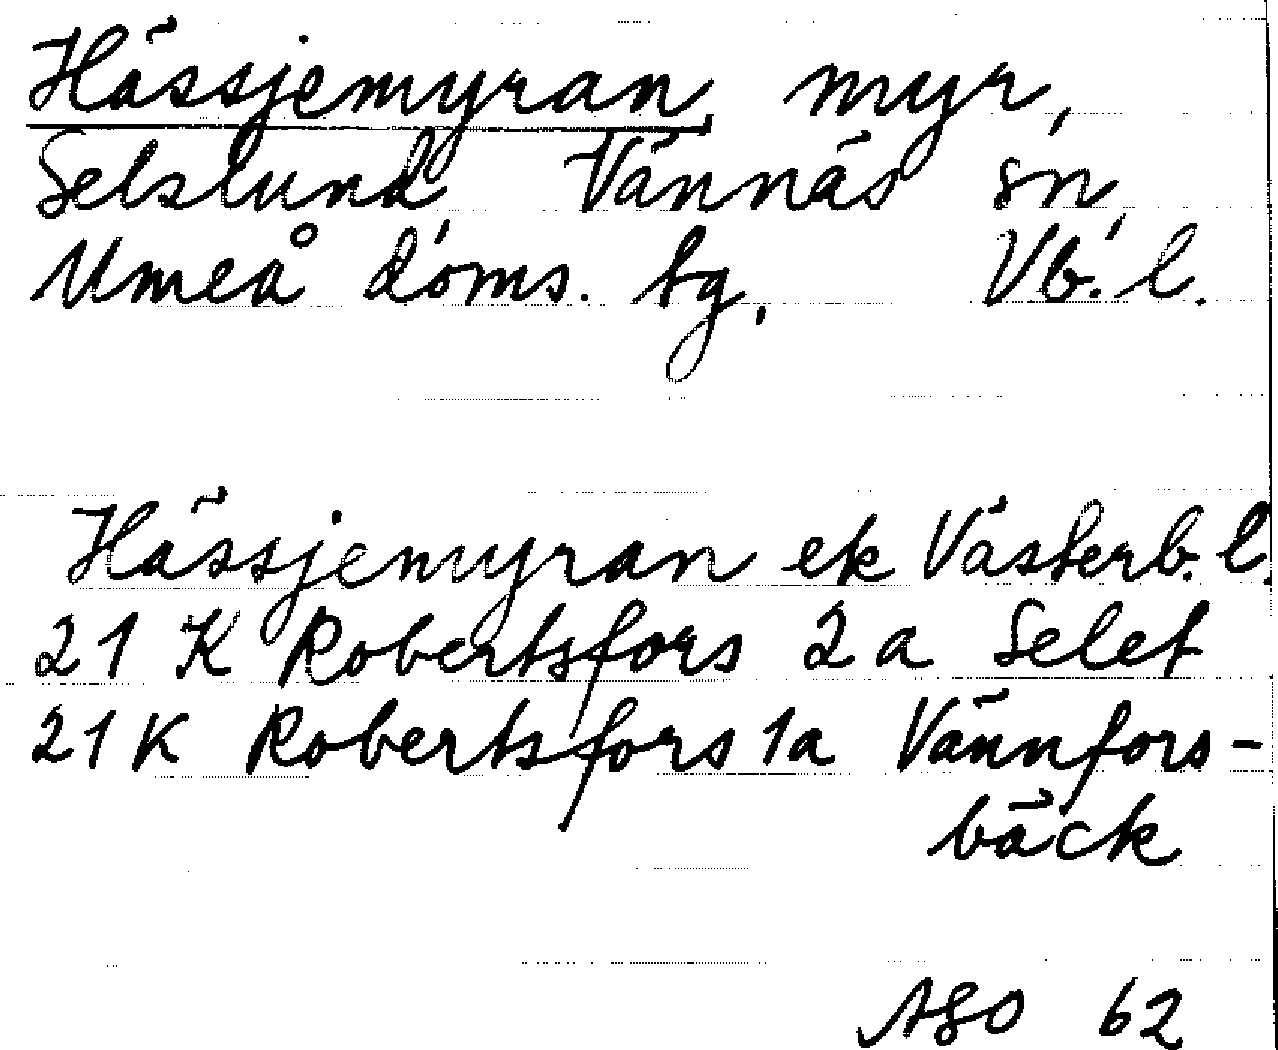 Hässjemyran, myr,
Selslund, Vännäs sn,
Umeå doms. tg, Vb. l.
Hässjemyran ek Västerb. l.
21 K Robertsfors 2a Selet
21 K Robertsfors 1a Vännfors-
bäck
ASO 62